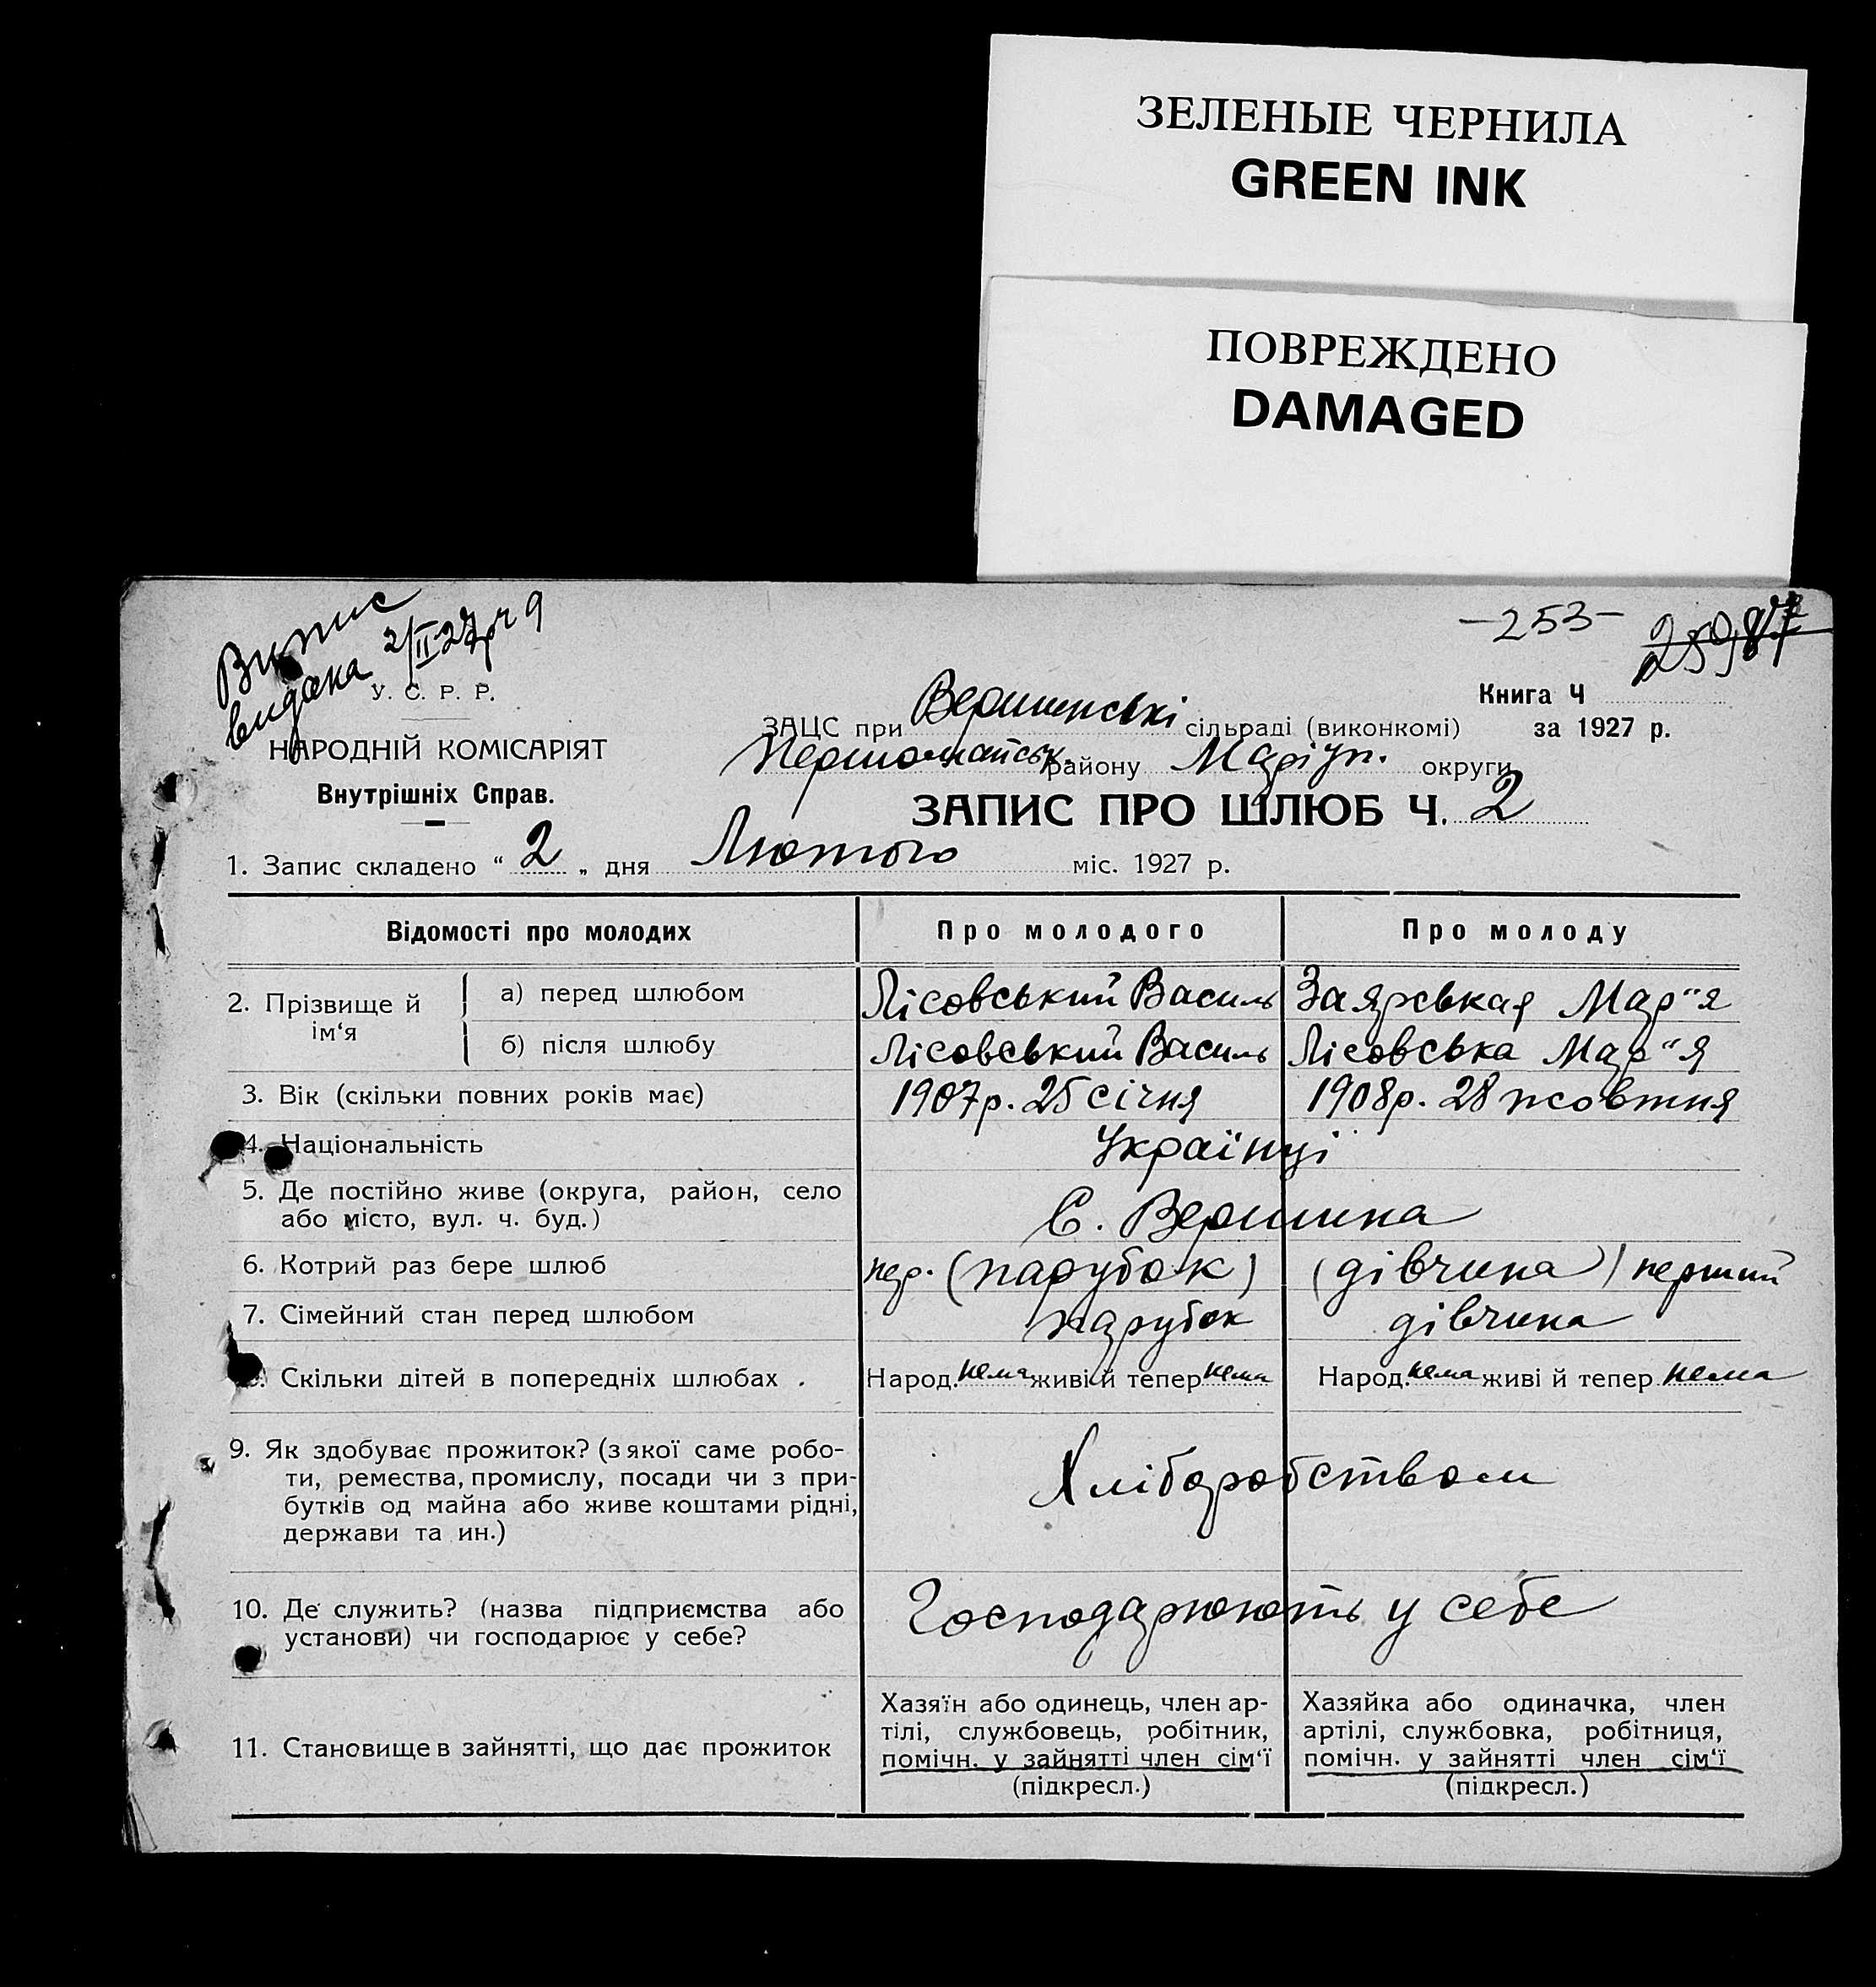 ЗЕЛЕНЫЕ ЧЕРНИЛА
GREEN INK
ПОВРЕЖДЕНО
DAMAGED
Випис
видана 2/II-27р ч 9
-253-
У. С. Р. Р.
НАРОДНІЙ КОМІСАРІЯТ
Внутрішніх Справ.
Книга Ч
ЗАЦС при Вершинські сільраді (виконкомі) за 1927 р.
Первомайськ. району Маріуп. округи
ЗАПИС ПРО ШЛЮБ Ч. 2
1. Запис складено “ 2 „ дня Лютого міс. 1927 р.
Відомості про молодих Про молодого Про молоду
2. Прізвище й ім‘я
а) перед шлюбом Лісовський Василь Заярськая Мар"я
б) після шлюбу Лісовський Василь Лісовська Мар"я
3. Вік (скільки повних років має) 1907р. 25 січня 1908р. 28 жовтня
4. Національність Українці
5. Де постійно живе (округа, район, село
або місто, вул. ч. буд.) С. Вершина
6. Котрий раз бере шлюб пер. (парубок) (дівчина) перший
7. Сімейний стан перед шлюбом парубок дівчина
Скільки дітей в попередніх шлюбах . Народ. нема живі й тепер нема Народ. нема живі й тепер нема
9. Як здобуває прожиток? (з якої саме робо-
ти, ремества, промислу, посади чи з при-
бутків од майна або живе коштами рідні,
держави та ин.)
Хліборобством
10. Де служить? (назва підприємства або
установи) чи господарює у себе?
Господарюють у себе
11. Становище в зайнятті, що дає прожиток
Хазяїн або одинець, член ар-
тілі, службовець, робітник,
помічн. у зайнятті член сім‘ї
(підкресл.)
Хазяйка або одиначка, член
артілі, службовка, робітниця,
помічн. у зайнятті член сім‘ї
(підкресл.)